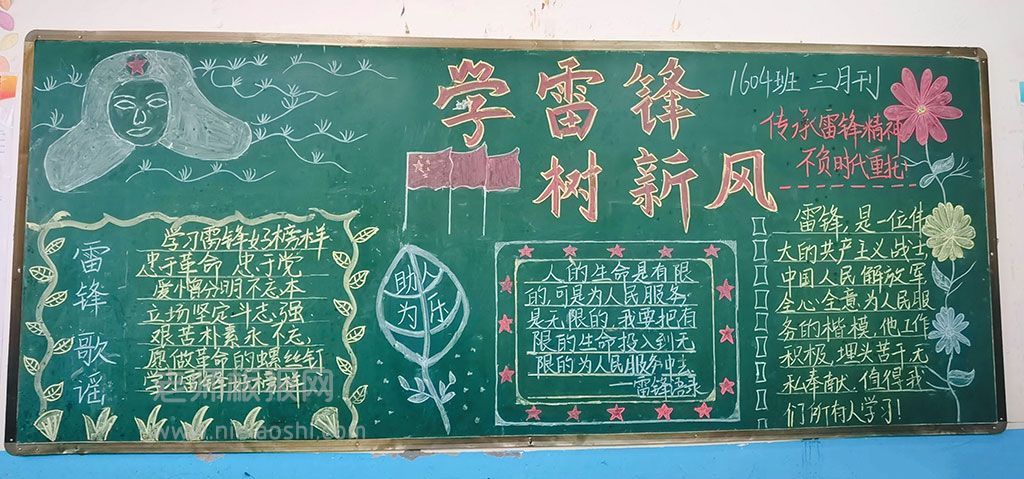 学雷锋
树新风
1604班 三月刊
传承雷锋精神
不负时代重托
雷锋歌谣
学习雷锋好榜样
忠于革命 忠于党
爱憎分明不忘本
立场坚定斗志强
艰苦朴素永不忘
愿做革命的螺丝钉
学习雷锋好榜样
助人
为乐
人的生命是有限
的,可是为人民服务,
是无限的,我要把有
限的生命投入到无
限的为人民服务中去
——雷锋语录
雷锋,是一位伟
大的共产主义战士
中国人民解放军
全心全意为人民服
务的楷模,他工作
积极,埋头苦干无
私奉献,值得我
们所有人学习!
老师板报网